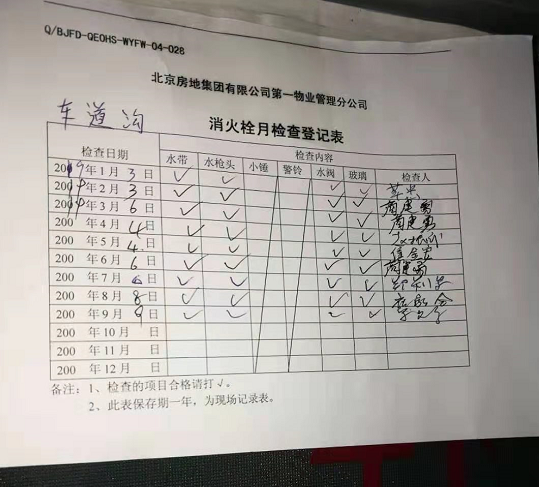 Q/BJFD-QEOHS-WYFW-04-028
北京房地集团有限公司第一物业管理分公司
车道沟
消火栓月检查登记表
检查日期 检查内容 检查人
水带 水枪头 小锤 警铃 水阀 玻璃
2019年1月3日 ✓ ✓ ✓ ✓
年2月3日 ✓ ✓ ✓ ✓
年3月6日 ✓ ✓ ✓ ✓
200 年4月4日 ✓ ✓ ✓ ✓
200 年5月4日 ✓ ✓ ✓ ✓
200 年6月6日 ✓ ✓ ✓ ✓
200 年7月6日 ✓ ✓ ✓ ✓
200 年8月8日 ✓ ✓ ✓ ✓
200 年9月9日 ✓ ✓ ✓ ✓
200 年10月 日
200 年11月 日
200 年12月 日
备注：1、检查的项目合格请打√。
2、此表保存期一年，为现场记录表。